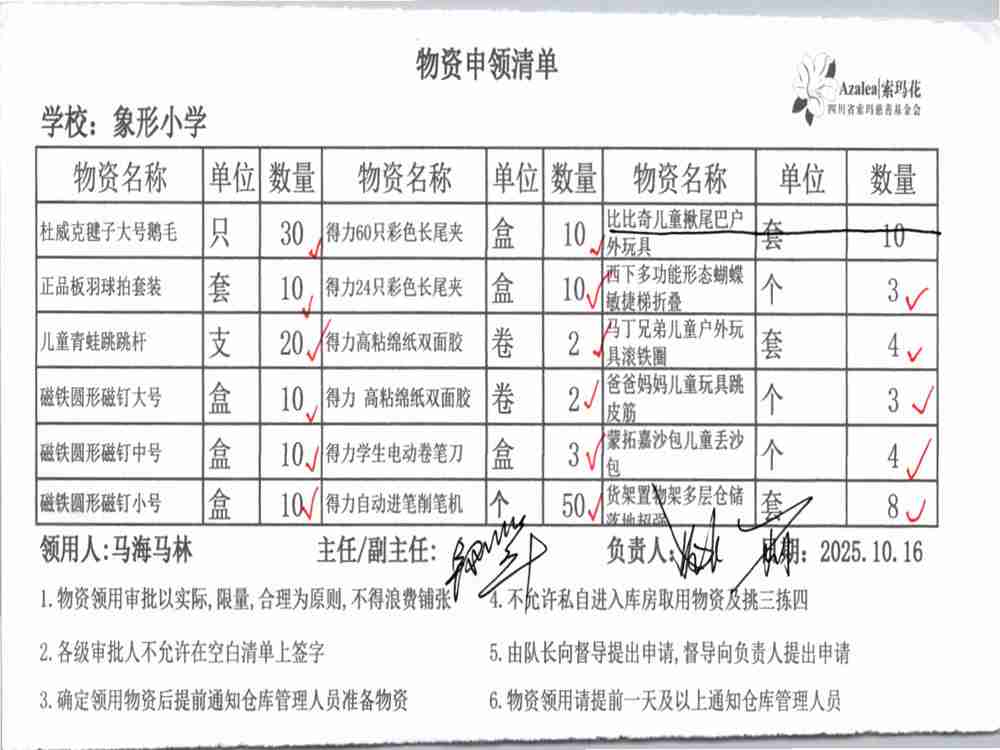 物资申领清单
Azalea|索玛花
四川省索玛慈善基金会
学校：象形小学
物资名称 单位 数量 物资名称 单位 数量 物资名称 单位 数量
杜威克毽子大号鹅毛 只 30 得力60只彩色长尾夹 盒 10 比比奇儿童揪尾巴户外玩具 套 10
正品板羽球拍套装 套 10 得力24只彩色长尾夹 盒 10 西下多功能形态蝴蝶敏捷梯折叠 个 3
儿童青蛙跳跳杆 支 20 得力高粘绵纸双面胶 卷 2 马丁兄弟儿童户外玩具滚铁圈 套 4
磁铁圆形磁钉大号 盒 10 得力 高粘绵纸双面胶 卷 2 爸爸妈妈儿童玩具跳皮筋 个 3
磁铁圆形磁钉中号 盒 10 得力学生电动卷笔刀 盒 3 蒙拓嘉沙包儿童丢沙包 个 4
磁铁圆形磁钉小号 盒 10 得力自动进笔削笔机 个 50 货架置物架多层仓储落地超强 套 8
领用人:马海马林 主任/副主任: 负责人: 日期: 2025.10.16
1.物资领用审批以实际,限量,合理为原则,不得浪费铺张 4.不允许私自进入库房取用物资及挑三拣四
2.各级审批人不允许在空白清单上签字 5.由队长向督导提出申请,督导向负责人提出申请
3.确定领用物资后提前通知仓库管理人员准备物资 6.物资领用请提前一天及以上通知仓库管理人员